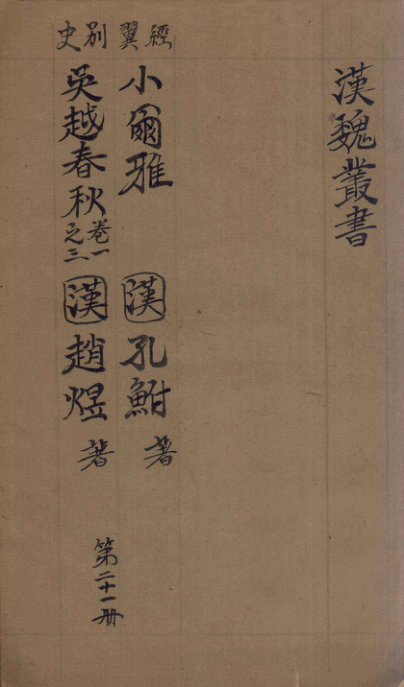 漢魏叢書
經翼
小爾雅 漢 孔鮒 著
別史
吳越春秋 卷一之三 漢 趙煜 著
第二十一冊